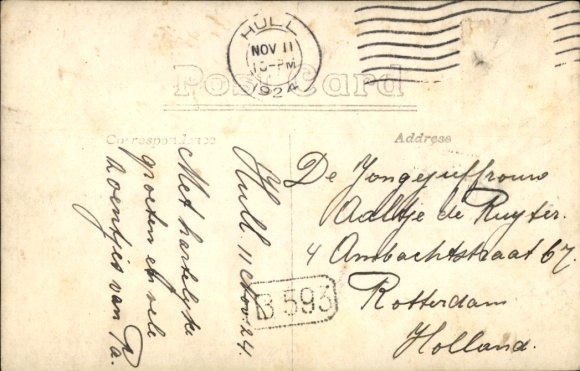 HULL
NOV 11
10-PM
1924
Post Card
Correspondence
Address
Hull 11 Nov. 24.
Met hartelijke
groeten en vele
zoentjes van Pa.
De Jongejuffrouw
Aaltje de Ruyter.
4 Ambachtstraat 67.
Rotterdam
Holland.
B 593